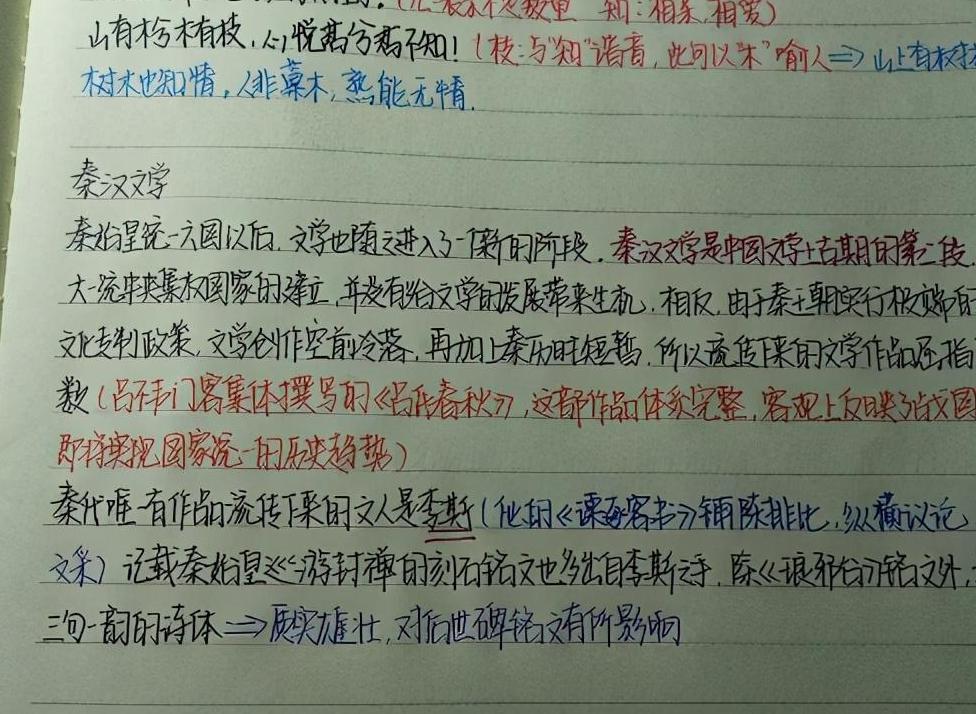 知：相亲，相爱）
山有木兮木有枝，心悦君兮君不知！（枝：与“知”谐音，此句以“木”喻人⇒山上有树木
树木也知情，人非草木，孰能无情．
秦汉文学
秦始皇统一六国以后，文学也随之进入了一个新的阶段．秦汉文学是中国文学上古期的第二段．
大一统中央集权国家的建立，并没有给文学的发展带来生机，相反，由于秦王朝实行极端的
文化专制政策，文学创作空前冷落，再加上秦历时短暂，所以流传下来的文学作品屈指
数（吕不韦门客集体撰写的《吕氏春秋》，这部作品体系完整，客观上反映了战国
即将实现国家统一的历史趋势）
秦代唯一有作品流传下来的文人是李斯（他的《谏逐客书》铺陈排比，纵横议论
文采）记载秦始皇巡游封禅的刻石铭文也多出自李斯之手，除《琅邪台》铭文外，
三句一韵的诗体⇒质实雄壮，对后世碑铭文有所影响